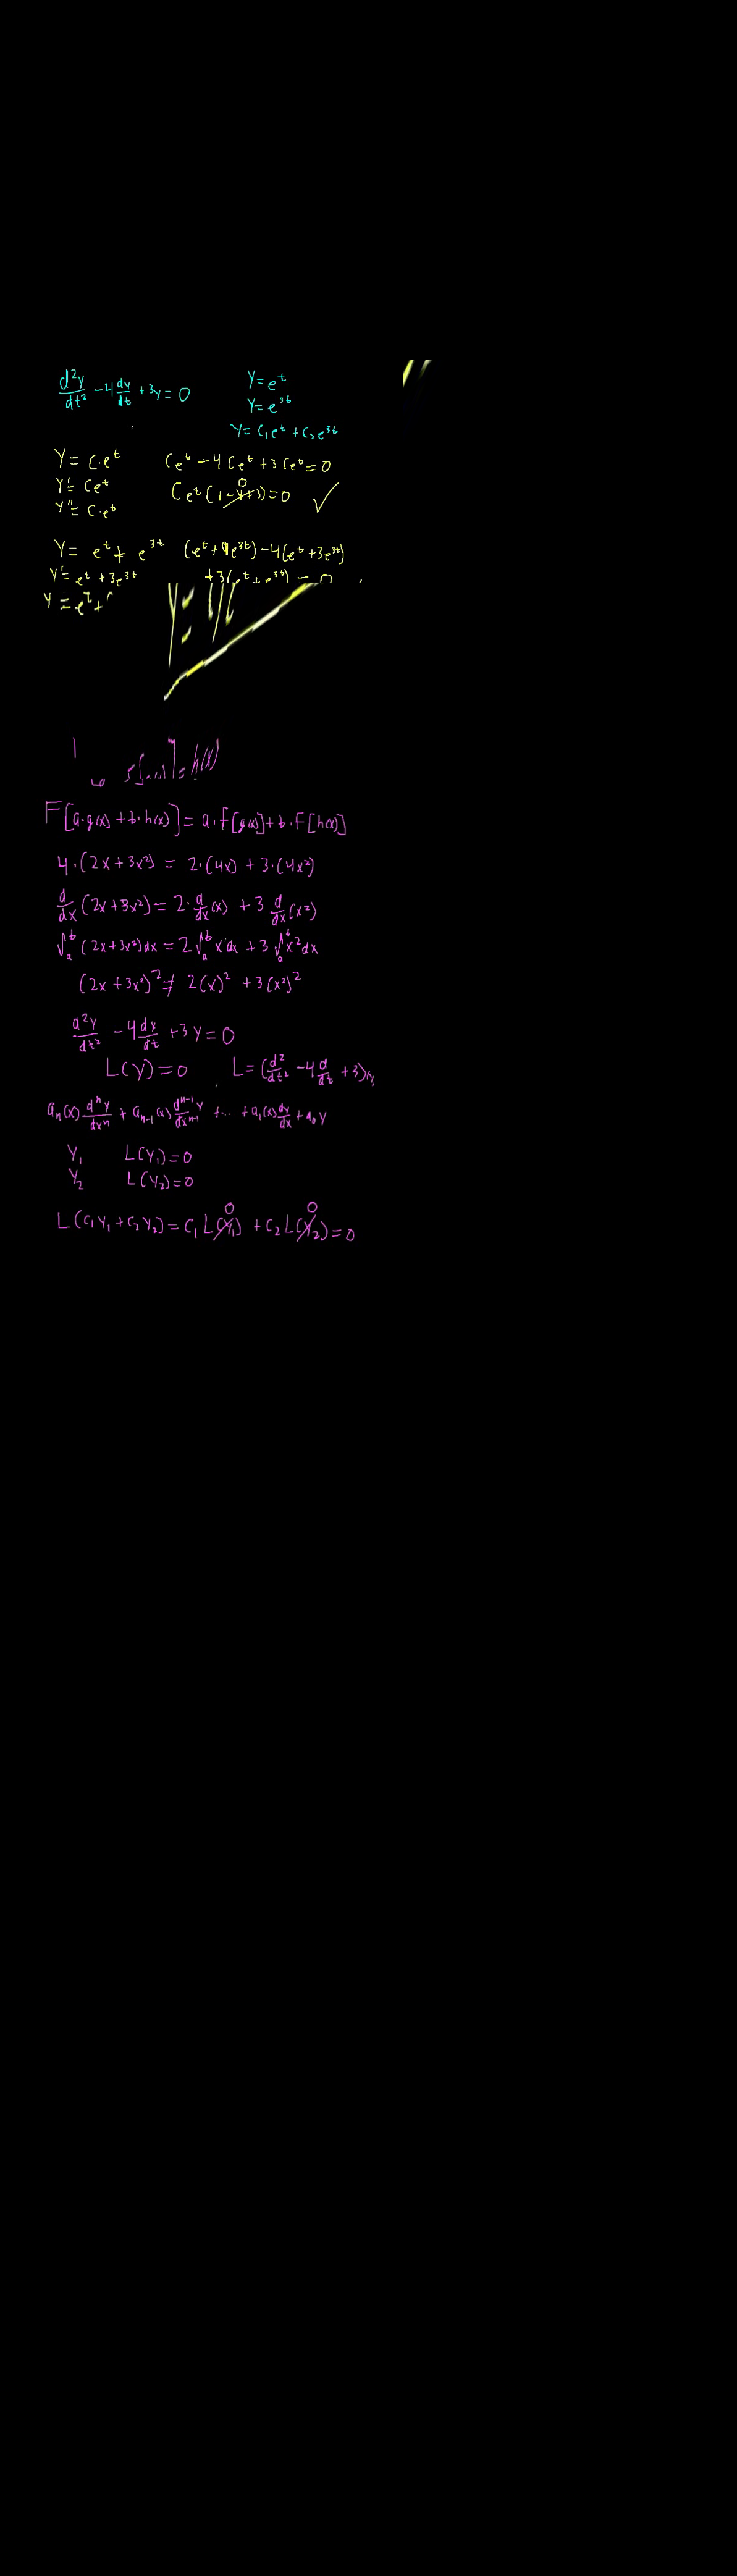 d²y/dt² - 4 dy/dt + 3y = 0
y = e^t
y = e^3t
y = c₁e^t + c₂e^3t
y = c·e^t    ce^t - 4ce^t + 3ce^t = 0
y' = ce^t    ce^t(1-4+3) = 0 ✓
0
y'' = c·e^t
y = e^t + e^3t    (e^t + 9e^3t) - 4(e^t + 3e^3t)
y' = e^t + 3e^3t    + 3(e^t + e^3t) = 0
y = e^t +
= h(x)
F[a·g(x) + b·h(x)] = a·f[g(x)] + b·F[h(x)]
4·(2x + 3x²) = 2·(4x) + 3·(4x²)
d/dx (2x + 3x²) = 2·d/dx(x) + 3 d/dx(x²)
∫_a^b (2x + 3x²)dx = 2∫_a^b x dx + 3∫_a^b x² dx
(2x + 3x²)² ≠ 2(x)² + 3(x²)²
d²y/dt² - 4 dy/dt + 3y = 0
L(y) = 0 , L = (d²/dt² - 4 d/dt + 3)(y)
aₙ(x) dⁿy/dxⁿ + aₙ₋₁(x) dⁿ⁻¹y/dxⁿ⁻¹ + ... + a₁(x) dy/dx + a₀y
y₁    L(y₁) = 0
y₂    L(y₂) = 0
0    0
L(c₁y₁ + c₂y₂) = c₁L(y₁) + c₂L(y₂) = 0